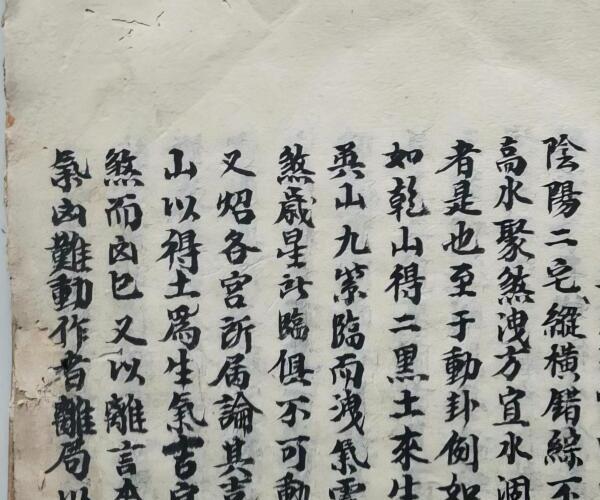 陰陽二宅縱橫錯綜不
高水聚煞洩方宜水
者是也至于動卦例如
如乾山得二黑土來生
巽山九紫臨而洩氣
煞歲星所臨俱不可動
又炤各宮所属論其吉
山以得土爲生氣吉
煞而凶也又以離言
氣凶難動作者離局以